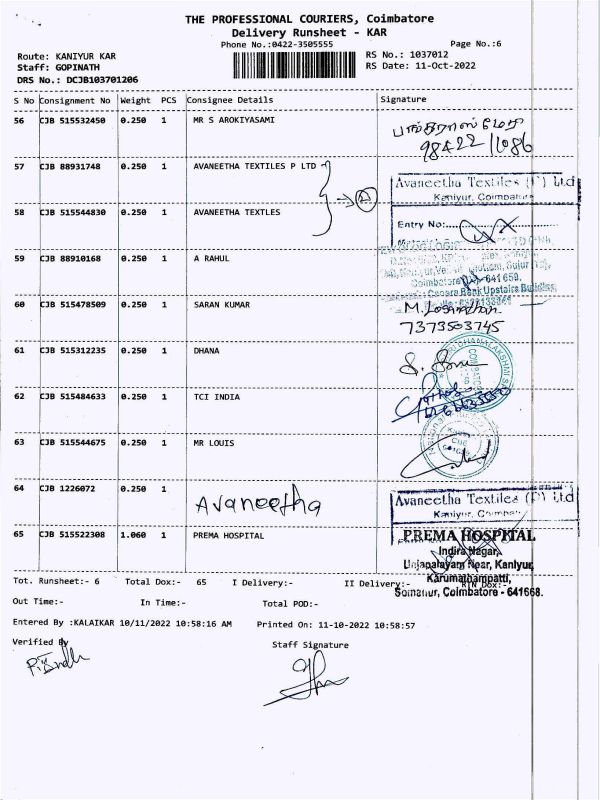 THE PROFESSIONAL COURIERS, Coimbatore
Delivery Runsheet - KAR
Phone No.:0422-3505555
Page No.:6
Route: KANIYUR KAR
RS No.: 1037012
Staff: GOPINATH
RS Date: 11-Oct-2022
DRS No.: DCJB103701206
S No Consignment No Weight PCS Consignee Details Signature
56 CJB 515532450 0.250 1 MR S AROKIYASAMI
57 CJB 88931748 0.250 1 AVANEETHA TEXTILES P LTD
Avaneetha Textiles (P) Ltd
Kaniyur, Coimbatore
58 CJB 515544830 0.250 1 AVANEETHA TEXTLES
Entry No:
59 CJB 88910168 0.250 1 A RAHUL
Coimbatore 641 659.
Canara Bank Upstairs Building
60 CJB 515478509 0.250 1 SARAN KUMAR
7373503745
61 CJB 515312235 0.250 1 DHANA
62 CJB 515484633 0.250 1 TCI INDIA
63 CJB 515544675 0.250 1 MR LOUIS
64 CJB 1226072 0.250 1 Avaneetha
Avaneetha Textiles (P) Ltd
Kaniyur, Coimbatore
65 CJB 515522308 1.060 1 PREMA HOSPITAL
PREMA HOSPITAL
Indira Nagar,
Unjapalayam Near, Kaniyur,
Karumathampatti,
Somanur, Coimbatore - 641668.
Tot. Runsheet:- 6 Total Dox:- 65 I Delivery:- II Delivery:- RTN Dox:-
Out Time:- In Time:- Total POD:-
Entered By :KALAIKAR 10/11/2022 10:58:16 AM Printed On: 11-10-2022 10:58:57
Verified By Staff Signature